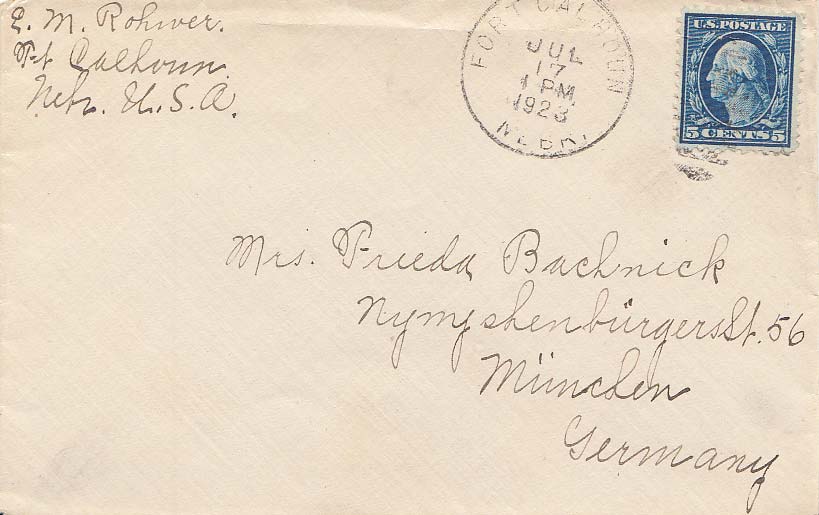 E. M. Rohwer.
Ft Calhoun
Nebr. U.S.A.
FORT CALHOUN
JUL
17
1 PM
1923
NEBR.
U.S. POSTAGE
5 CENTS 5
Mrs. Frieda Bachnick
Nympshenbürgerst. 56
München
Germany